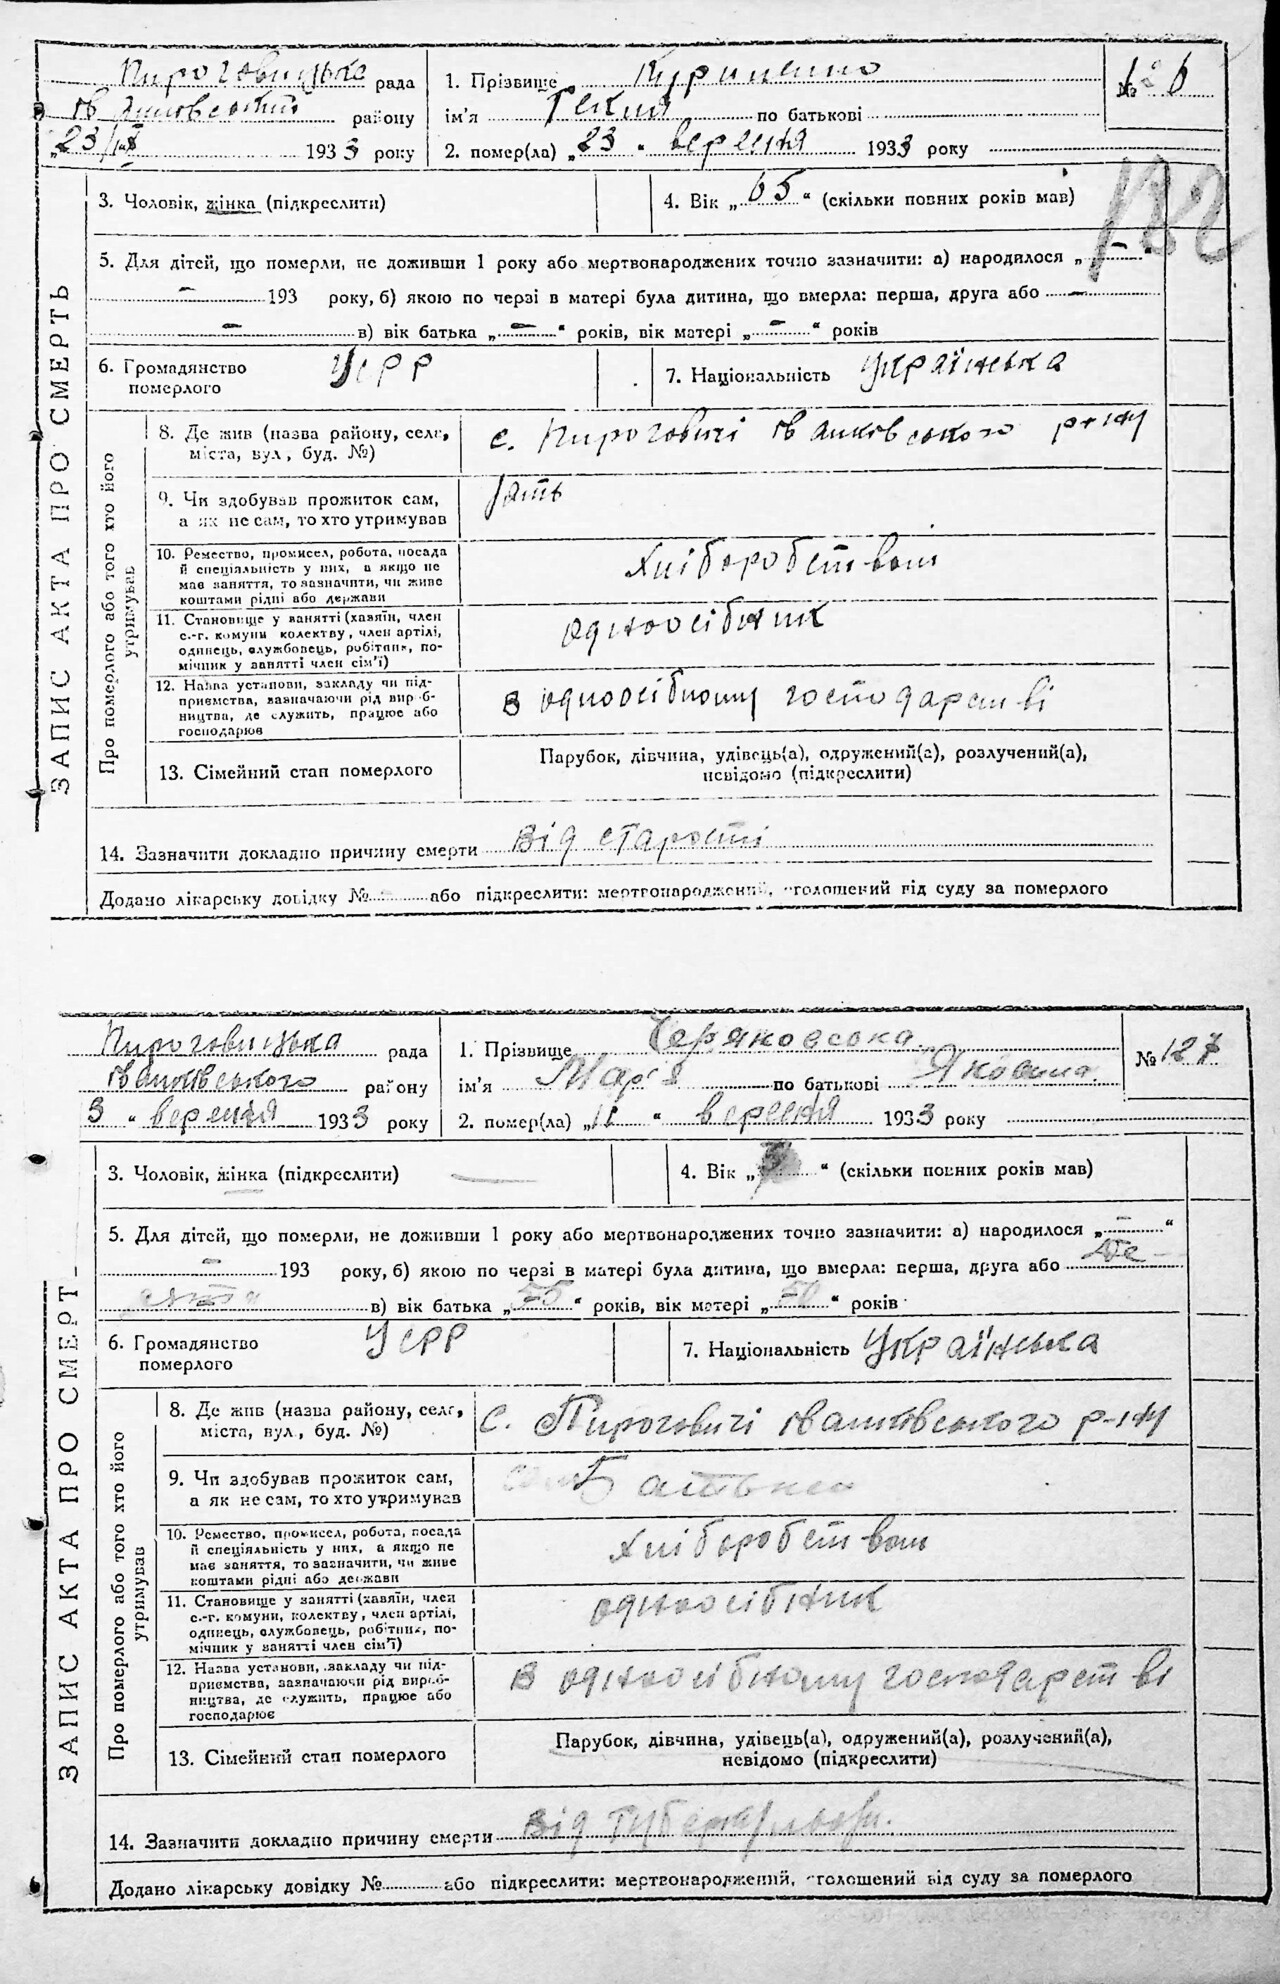 Пироговицька рада
Іванковський району
„23/ІХ 1933 року
1. Прізвище Куриленко
ім'я Текля по батькові
2. помер(ла) „23" вересня 1933 року
№ 126
182
ЗАПИС АКТА ПРО СМЕРТЬ
3. Чоловік, жінка (підкреслити)
4. Вік „65" (скільки повних років мав)
5. Для дітей, що померли, не доживши 1 року або мертвонароджених точно зазначити: а) народилося „ – "
– 193 року, б) якою по черзі в матері була дитина, що вмерла: перша, друга або –
– в) вік батька „ – " років, вік матері „ – " років
6. Громадянство
померлого
УСРР
7. Національність Українська
Про померлого або того хто його
утримував
8. Де жив (назва району, село,
міста, вул., буд. №)
с. Пироговичі Іванківського р-ну
9. Чи здобував прожиток сам,
а як не сам, то хто утримував
10. Ремество, промисел, робота, посада
й спеціяльність у них, а якщо не
має заняття, то зазначити, чи живе
коштами рідні або держави
Хліборобством
11. Становище у занятті (хазяїн, член
с.-г. комуни колективу, член артілі,
одинець, службовець, робітник, по-
мічник у занятті член сім'ї)
одноосібник
12. Назва установи, закладу чи під-
приємства, зазначаючи рід вироб-
ництва, де служить, працює або
господарює
В одноосібному господарстві
13. Сімейний стан померлого
Парубок, дівчина, удівець(а), одружений(а), розлучений(а),
невідомо (підкреслити)
14. Зазначити докладно причину смерти Від старости
Додано лікарську довідку № – або підкреслити: мертвонароджений, оголошений від суду за померлого
Пироговицька рада
Іванківського району
3 " вересня 1933 року
1. Прізвище
ім'я Марія по батькові Яковина
2. помер(ла) „11" вересня 1933 року
№ 127
ЗАПИС АКТА ПРО СМЕРТ
3. Чоловік, жінка (підкреслити)
4. Вік „ " (скільки повних років мав)
5. Для дітей, що померли, не доживши 1 року або мертвонароджених точно зазначити: а) народилося „ – "
– 193 року, б) якою по черзі в матері була дитина, що вмерла: перша, друга або де-
в) вік батька „55" років, вік матері „50" років
6. Громадянство
померлого
УСРР
7. Національність Українська
Про померлого або того хто його
утримував
8. Де жив (назва району, село,
міста, вул., буд. №)
с. Пироговичі Іванківського р-ну
9. Чи здобував прожиток сам,
а як не сам, то хто утримував
10. Ремество, промисел, робота, посада
й спеціяльність у них, а якщо не
має заняття, то зазначити, чи живе
коштами рідні або держави
Хліборобством
11. Становище у занятті (хазяїн, член
с.-г. комуни, колективу, член артілі,
одинець, службовець, робітник, по-
мічник у занятті член сім'ї)
одноосібник
12. Назва установи, закладу чи під-
приємства, зазначаючи рід вироб-
ництва, де служить, працює або
господарює
В одноосібному господарстві
13. Сімейний стан померлого
Парубок, дівчина, удівець(а), одружений(а), розлучений(а),
невідомо (підкреслити)
14. Зазначити докладно причину смерти Від
Додано лікарську довідку № або підкреслити: мертвонароджений, оголошений від суду за померлого